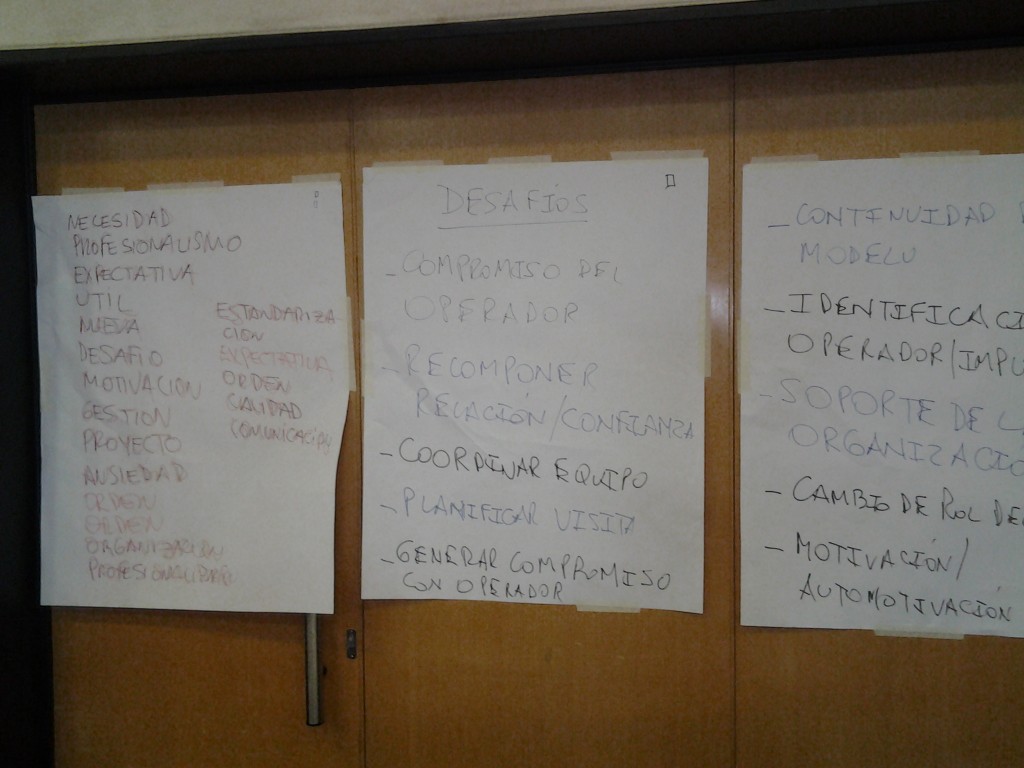 NECESIDAD
PROFESIONALISMO
EXPECTATIVA
UTIL
NUEVA
DESAFIO
MOTIVACION
GESTION
PROYECTO
ANSIEDAD
ORDEN
ORDEN
ORGANIZACION
PROFESIONALISMO
ESTANDARIZA
CION
EXPECTATIVA
ORDEN
CALIDAD
COMUNICACION
DESAFÍOS
- COMPROMISO DEL
OPERADOR
- RECOMPONER
RELACIÓN/CONFIANZA
- COORDINAR EQUIPO
- PLANIFICAR VISITA
- GENERAR COMPROMISO
CON OPERADOR
- CONTINUIDAD
MODELO
- IDENTIFICACI
OPERADOR/IMPU
- SOPORTE DE L
ORGANIZACIÓ
- CAMBIO DE ROL DE
- MOTIVACIÓN/
AUTOMOTIVACIÓN